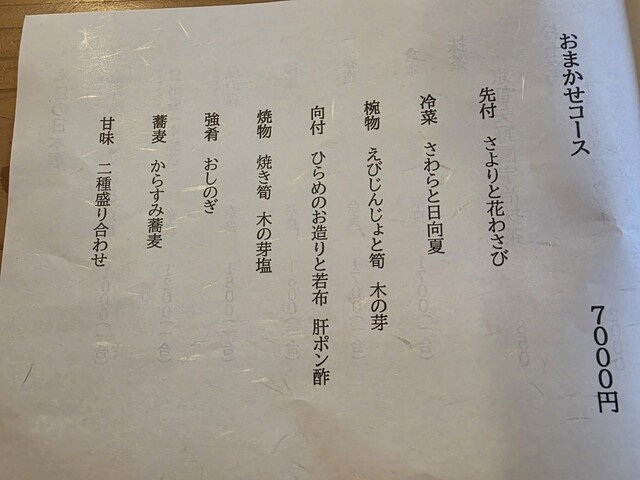 おまかせコース 7000円
先付 さよりと花わさび
冷菜 さわらと日向夏
椀物 えびじんじょと筍 木の芽
向付 ひらめのお造りと若布 肝ポン酢
焼物 焼き筍 木の芽塩
強肴 おしのぎ
蕎麦 からすみ蕎麦
甘味 二種盛り合わせ